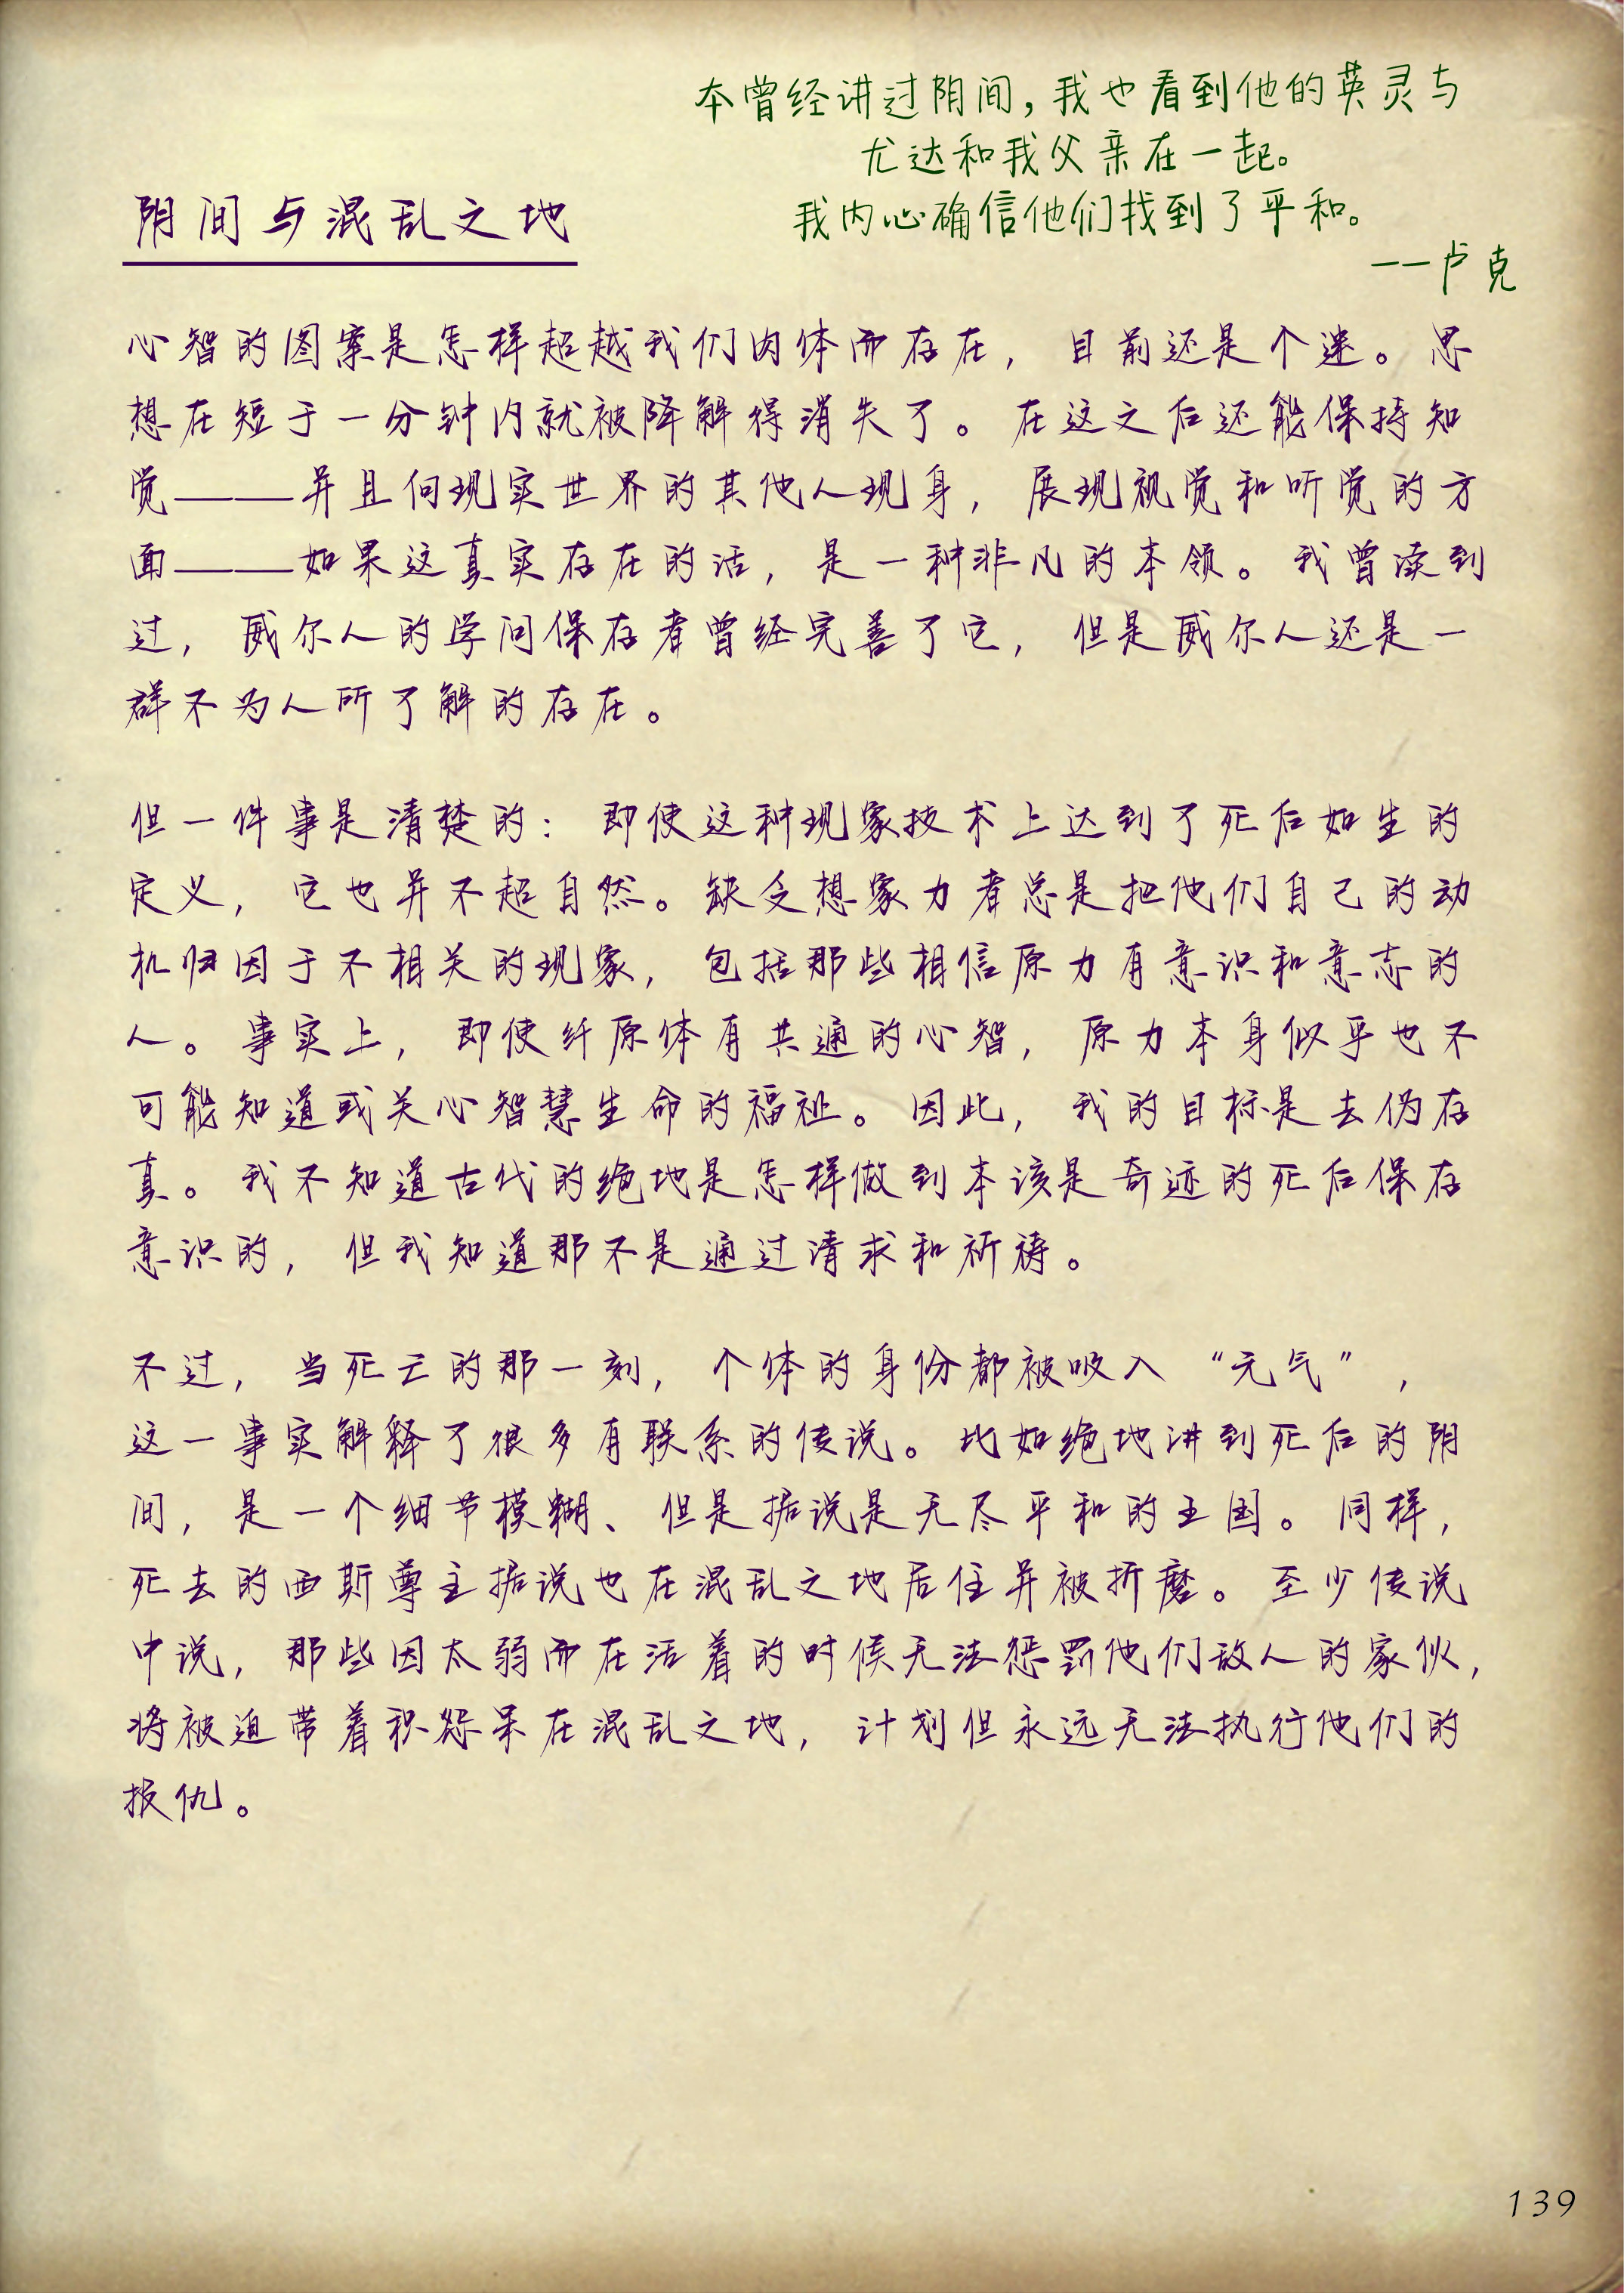 本曾经讲过阴间，我也看到他的英灵与
尤达和我父亲在一起。
我内心确信他们找到了平和。
——卢克
阴间与混乱之地
心智的图案是怎样超越我们肉体而存在，目前还是个迷。思
想在短于一分钟内就被降解得消失了。在这之后还能保持知
觉——并且向现实世界的其他人现身，展现视觉和听觉的方
面——如果这真实存在的话，是一种非凡的本领。我曾读到
过，威尔人的学问保存者曾经完善了它，但是威尔人还是一
群不为人所了解的存在。
但一件事是清楚的：即使这种现象技术上达到了死后如生的
定义，它也并不超自然。缺乏想象力者总是把他们自己的动
机归因于不相关的现象，包括那些相信原力有意识和意志的
人。事实上，即使纤原体有共通的心智，原力本身似乎也不
可能知道或关心智慧生命的福祉。因此，我的目标是去伪存
真。我不知道古代的绝地是怎样做到本该是奇迹的死后保存
意识的，但我知道那不是通过请求和祈祷。
不过，当死亡的那一刻，个体的身份都被吸入“元气”，
这一事实解释了很多有联系的传说。比如绝地讲到死后的阴
间，是一个细节模糊、但是据说是无尽平和的王国。同样，
死去的西斯尊主据说也在混乱之地居住并被折磨。至少传说
中说，那些因太弱而在活着的时候无法惩罚他们敌人的家伙，
将被迫带着积怨呆在混乱之地，计划但永远无法执行他们的
报仇。
139